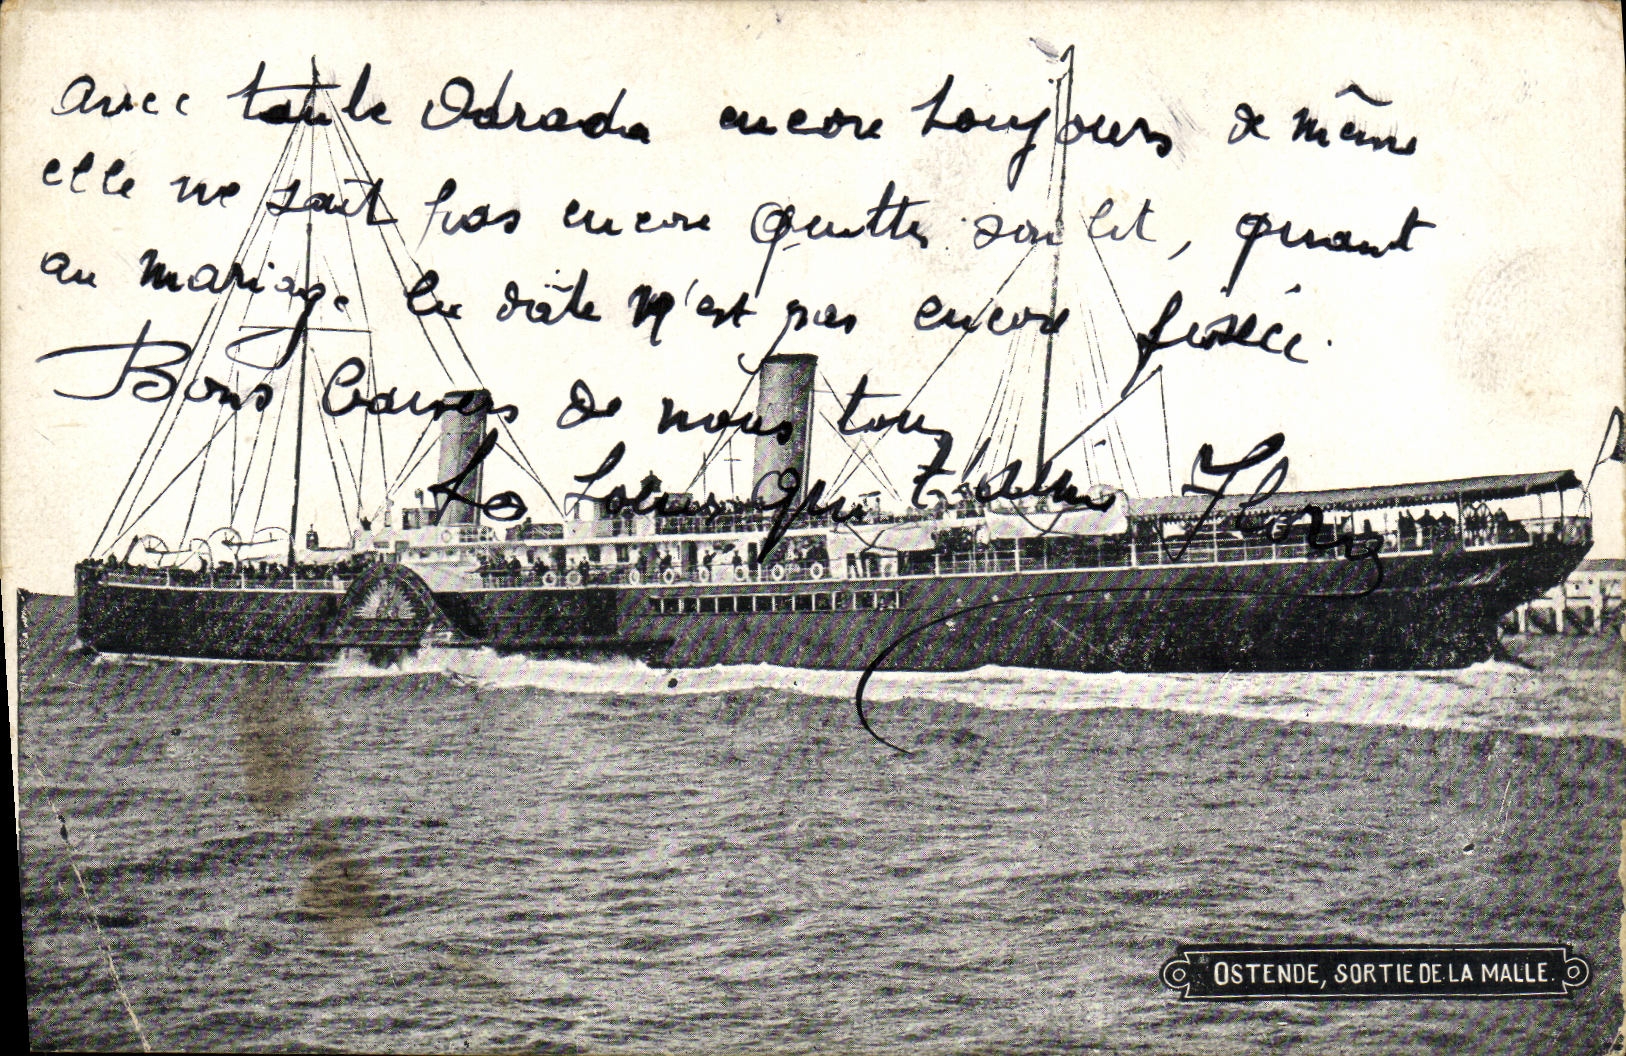 avec tante Odrada encore toujours de même
elle ne sait pas encore quitter son lit, quant
au mariage la date n'est pas encore fixée.
Bons baisers de nous tous
Ta soeur qui t'aime Flory
OSTENDE, SORTIE DE LA MALLE.